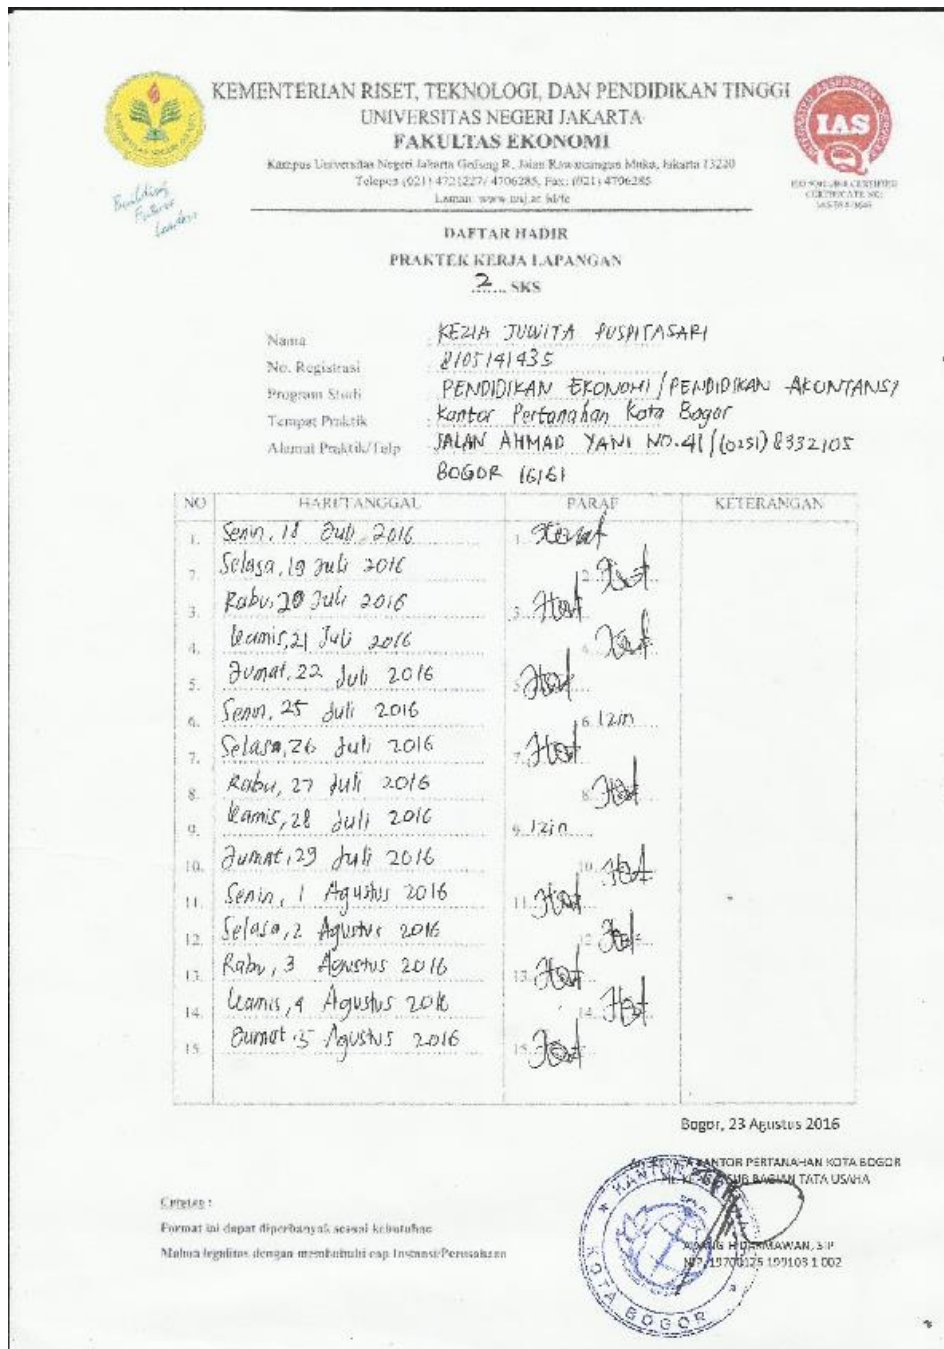 KEMENTERIAN RISET, TEKNOLOGI, DAN PENDIDIKAN TINGGI
UNIVERSITAS NEGERI JAKARTA
FAKULTAS EKONOMI
Kampus Universitas Negeri Jakarta Gedung R, Jalan Rawamangun Muka, Jakarta 13220
Telepon (021) 4721227/ 4706285, Fax: (021) 4706285
Laman: www.unj.ac.id/fe
Building
Future
Leaders
IAS
DAFTAR HADIR
PRAKTEK KERJA LAPANGAN
2 SKS
Nama : KEZIA JUWITA PUSPITASARI
No. Registrasi : 8105141435
Program Studi : PENDIDIKAN EKONOMI / PENDIDIKAN AKUNTANSI
Tempat Praktik : Kantor Pertanahan Kota Bogor
Alamat Praktik/Telp : JALAN AHMAD YANI NO.41 / (0251) 8332105
BOGOR 16161
NO HARI/TANGGAL PARAF KETERANGAN
1. Senin, 18 Juli 2016 1.
2. Selasa, 19 Juli 2016 2.
3. Rabu, 20 Juli 2016 3.
4. Kamis, 21 Juli 2016 4.
5. Jumat, 22 Juli 2016 5.
6. Senin, 25 Juli 2016 6. Izin
7. Selasa, 26 Juli 2016 7.
8. Rabu, 27 Juli 2016 8.
9. Kamis, 28 Juli 2016 9. Izin
10. Jumat, 29 Juli 2016 10.
11. Senin, 1 Agustus 2016 11.
12. Selasa, 2 Agustus 2016 12.
13. Rabu, 3 Agustus 2016 13.
14. Kamis, 4 Agustus 2016 14.
15. Jumat, 5 Agustus 2016 15.
Bogor, 23 Agustus 2016
KANTOR PERTANAHAN KOTA BOGOR
SUB BAGIAN TATA USAHA
DARMAWAN, SIP
199103 1 002
KOTA BOGOR
Catatan :
Format ini dapat diperbanyak sesuai kebutuhan
Mohon legalitas dengan membubuhi cap Instansi/Perusahaan